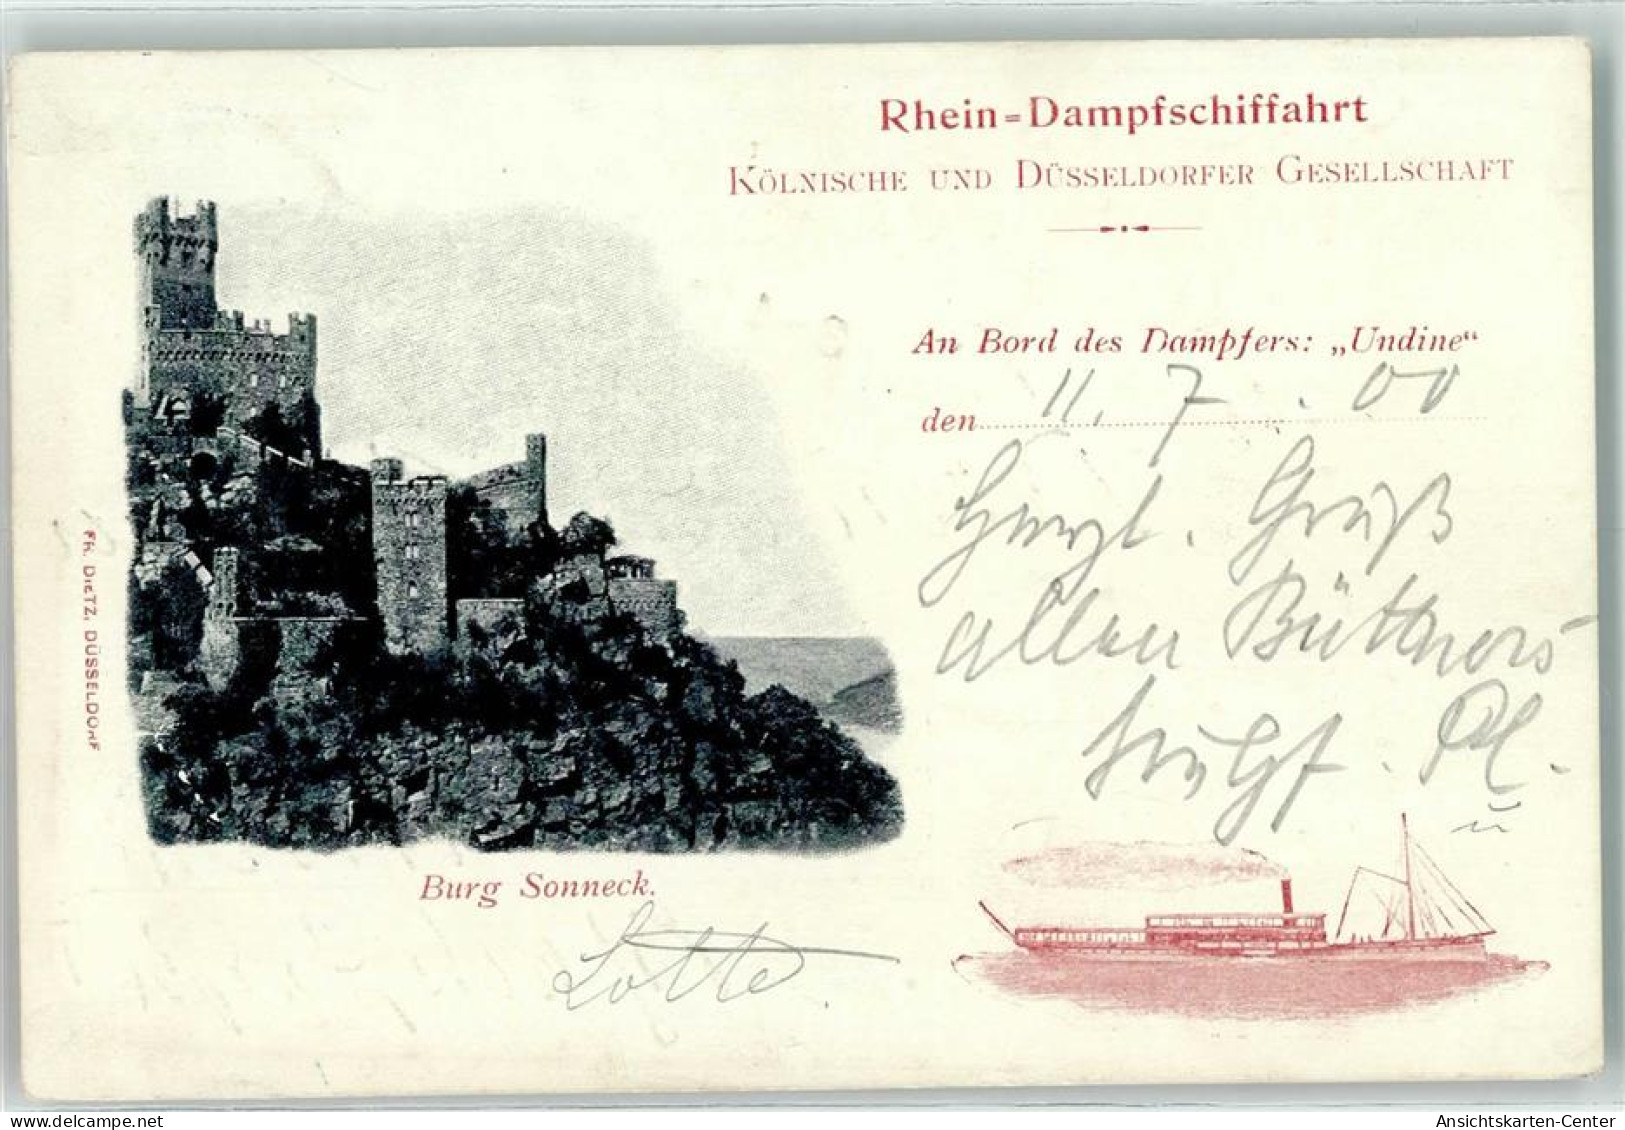 Rhein=Dampfschiffahrt
KÖLNISCHE UND DÜSSELDORFER GESELLSCHAFT
An Bord des Dampfers: „Undine“
den 11. 7. 00
Herzl. Gruß
allen Büttners
u
FR. DIETZ, DÜSSELDORF
Burg Sonneck.
Lotte
delcampe.net
Ansichtskarten-Center